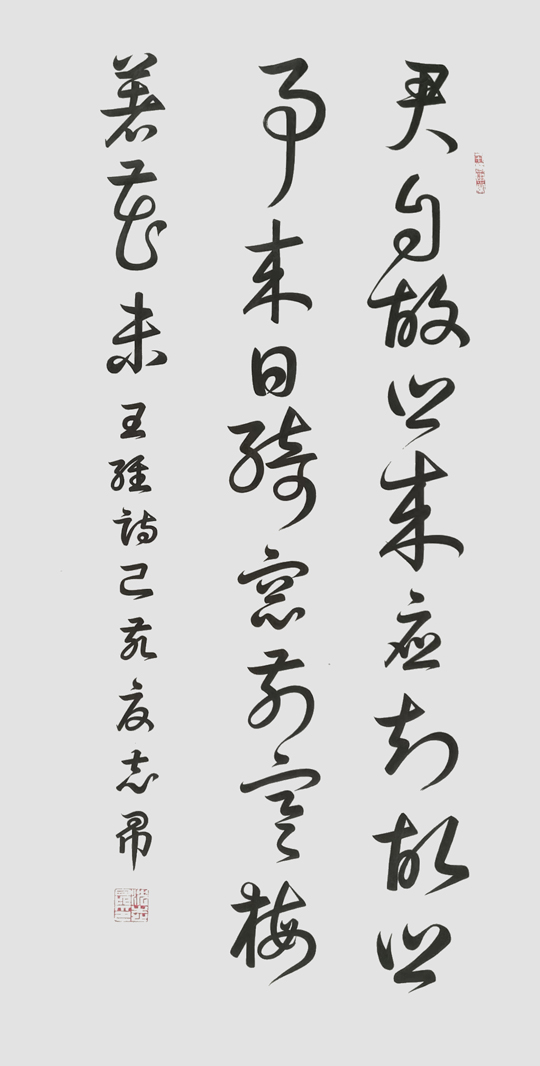 君自故乡来应知故乡
事来日绮窗前寒梅
着花未 王维诗己亥夏志帚